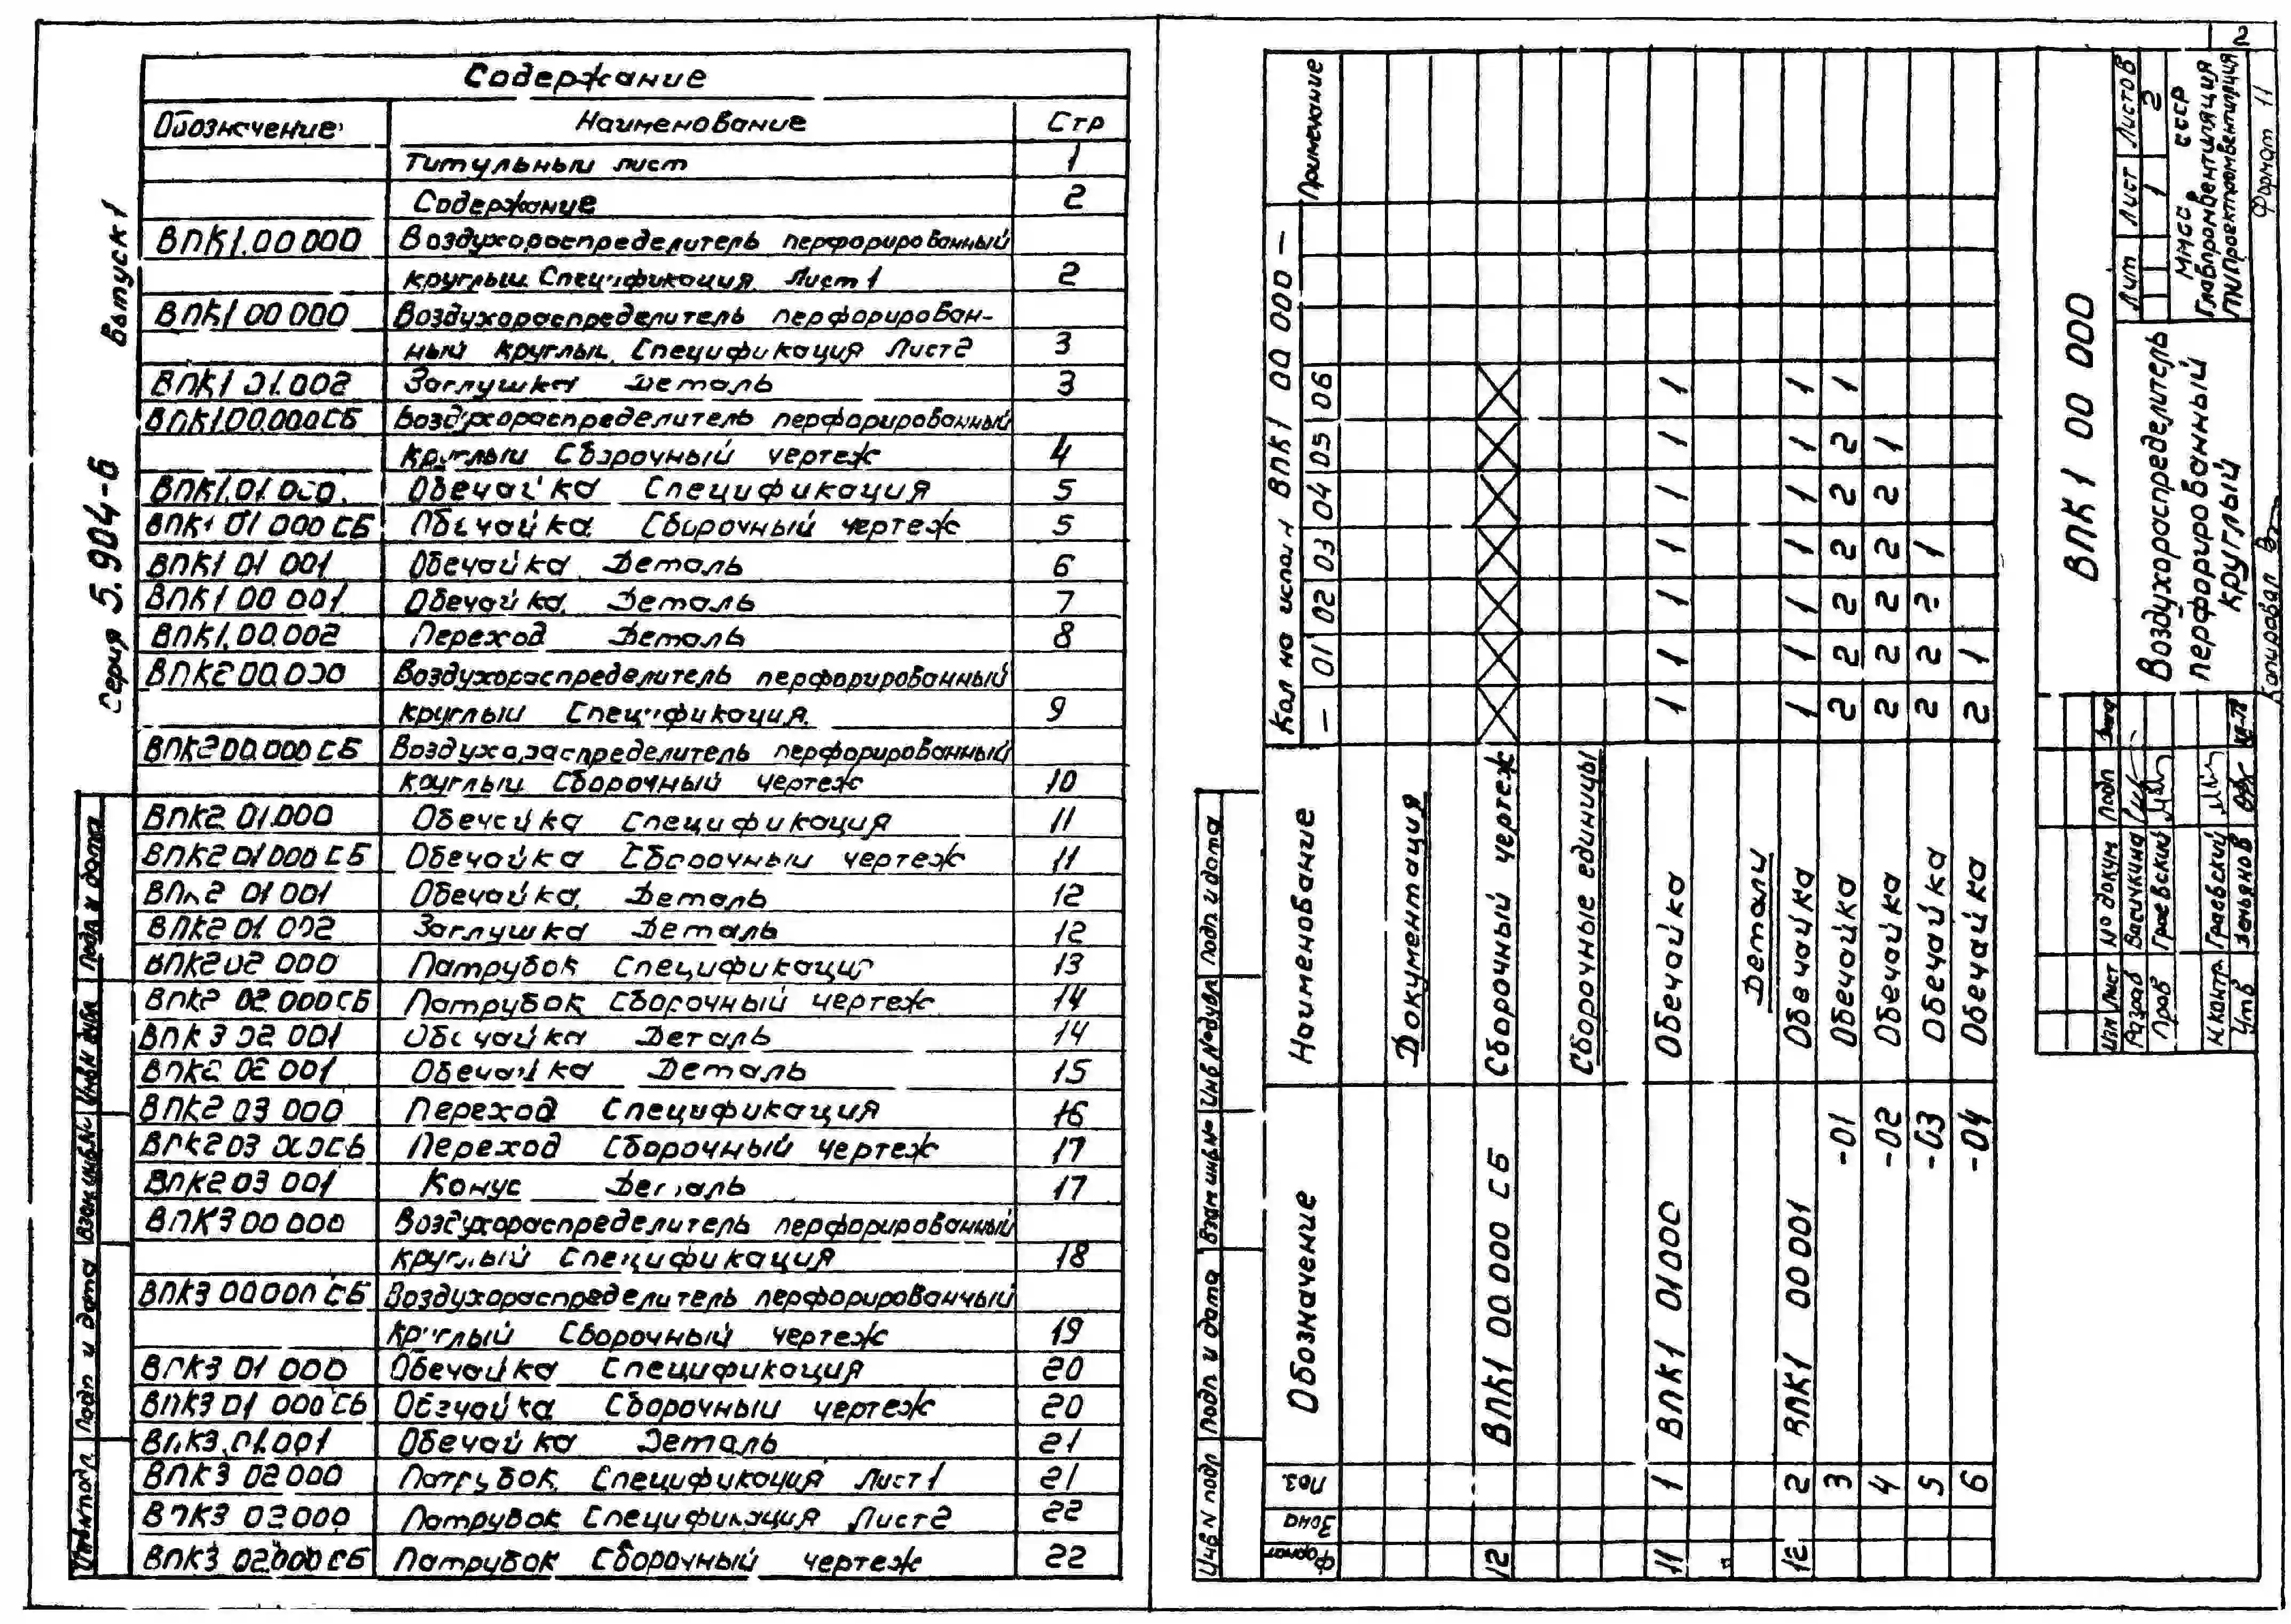 Содержание
Обозначение Наименование Стр
Титульный лист 1
Содержание 2
ВПК1.00000 Воздухораспределитель перфорированный
круглый. Спецификация. Лист 1 2
ВПК1 00 000 Воздухораспределитель перфорирован-
ный круглый. Спецификация Лист 2 3
ВПК1 01.002 Заглушка Деталь 3
ВПК1.00.000СБ Воздухораспределитель перфорированный
круглый Сборочный чертеж 4
ВПК1.01.000. Обечайка Спецификация 5
ВПК1 01 000 СБ Обечайка. Сборочный чертеж 5
ВПК1 01 001 Обечайка. Деталь 6
ВПК1 00 001 Обечайка. Деталь 7
ВПК1.00.002 Переход Деталь 8
ВПК2 00.000 Воздухораспределитель перфорированный
круглый Спецификация. 9
ВПК2 00.000 СБ Воздухораспределитель перфорированный
круглый Сборочный чертеж 10
ВПК2.01.000 Обечайка Спецификация 11
ВПК2 01 000 СБ Обечайка Сборочный чертеж 11
ВПК2 01 001 Обечайка. Деталь 12
ВПК2 01.002 Заглушка Деталь 12
ВПК2 02 000 Патрубок Спецификация 13
ВПК2 02.000 СБ Патрубок Сборочный чертеж 14
ВПК3 02 001 Обечайка Деталь 14
ВПК2 02 001 Обечайка Деталь 15
ВПК2 03 000 Переход Спецификация 16
ВПК2 03 000СБ Переход Сборочный чертеж 17
ВПК2 03 001 Конус Деталь 17
ВПК3 00 000 Воздухораспределитель перфорированный
круглый Спецификация 18
ВПК3 00.000 СБ Воздухораспределитель перфорированный
круглый Сборочный чертеж 19
ВПК3 01 000 Обечайка Спецификация 20
ВПК3 01 000 СБ Обечайка Сборочный чертеж 20
ВПК3.01.001 Обечайка Деталь 21
ВПК3 02.000 Патрубок. Спецификация Лист 1 21
ВПК3 02.000 Патрубок Спецификация Лист 2 22
ВПК3 02.000 СБ Патрубок Сборочный чертеж 22
Серия 5.904-6 Выпуск 1
Инв N подл Подп и дата Взам инв.N Инв N дубл Подп и дата
2
Инв N подл Подп и дата Взам инв.N Инв N дубл Подп и дата
Формат Зона Поз. Обозначение Наименование Кол на исполн ВПК1 00 000 — Примечание
— 01 02 03 04 05 06
Документация
12 ВПК1 00.000 СБ Сборочный чертеж
Сборочные единицы
11 1 ВПК1 01 000 Обечайка 1 1 1 1 1 1 1
Детали
12 2 ВПК1 00 001 Обечайка 1 1 1 1 1 1 1
3 -01 Обечайка 2 2 2 2 2 2 1
4 -02 Обечайка 2 2 2 2 2 1
5 -03 Обечайка 2 2 2 1
6 -04 Обечайка 2 1
ВПК1 00 000
Изм Лист № докум Подп Дата
Разраб Васичкина
Пров Граевский
Н.контр. Граевский
Утв Земьянов
Воздухораспределитель
перфорированный
круглый
Лит Лист Листов
1 2
ММСС СССР
Главпромвентиляция
ГПИ Проектпромвентиляция
Копировал Формат 11